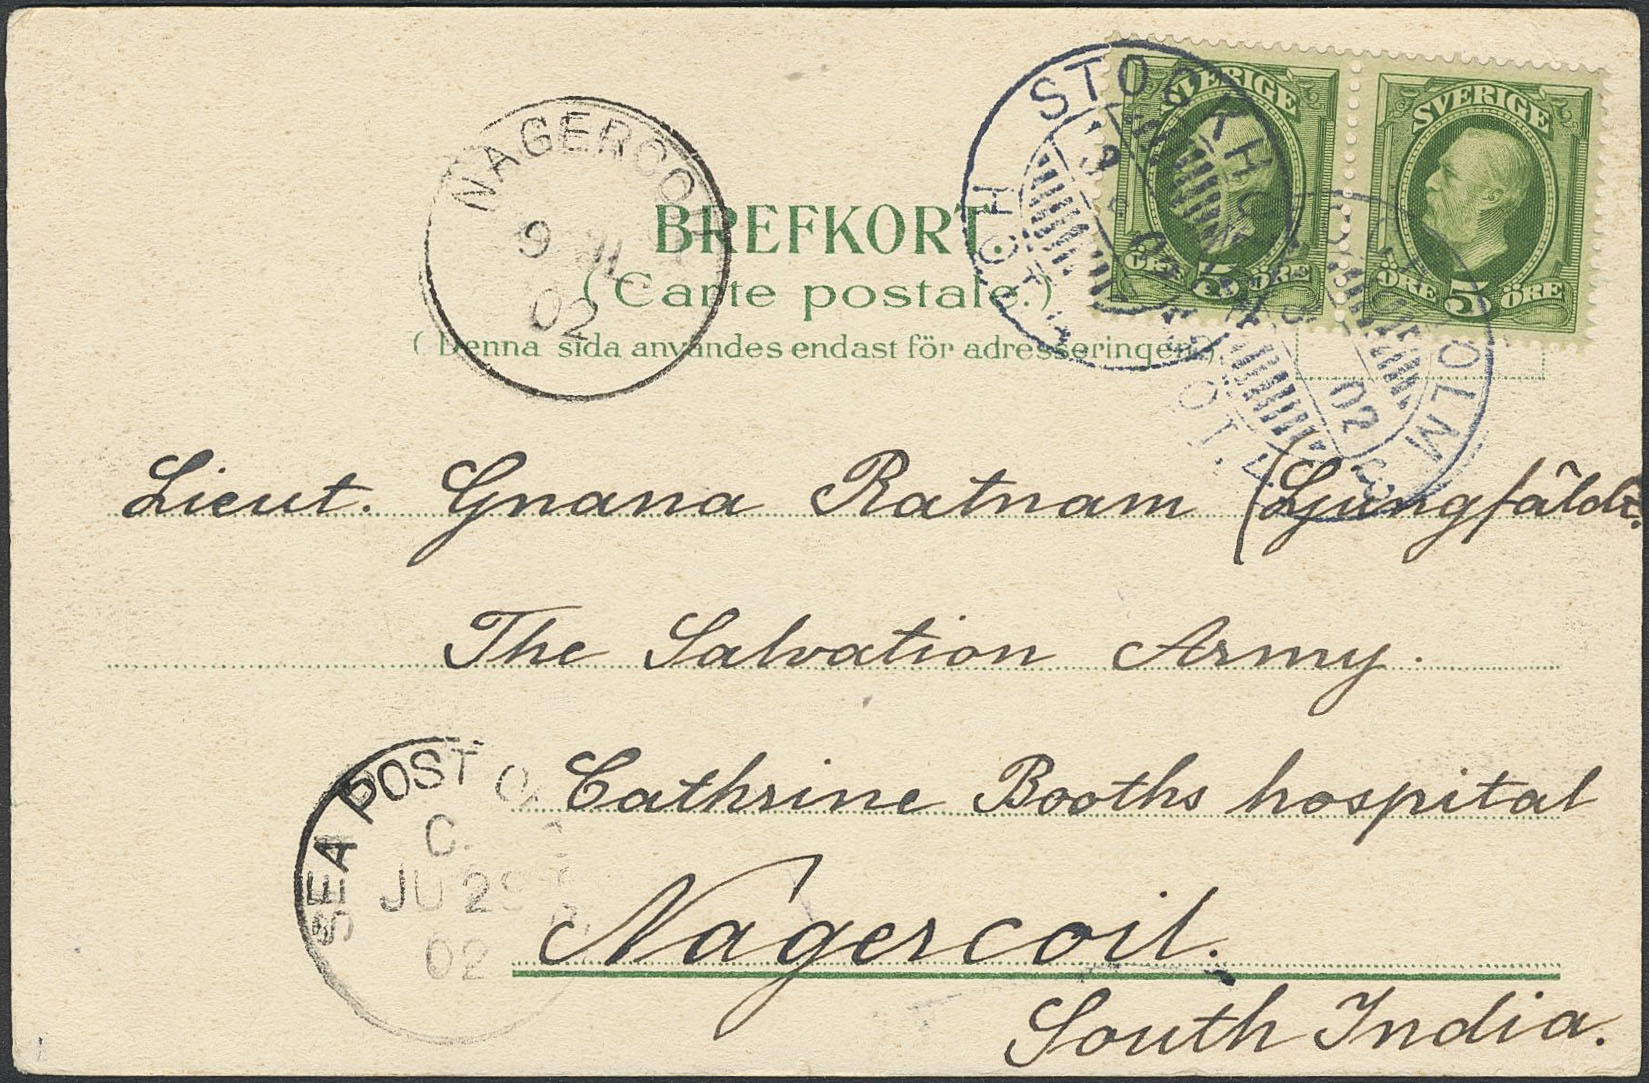 SVERIGE SVERIGE
ÖRE 5 ÖRE ÖRE 5 ÖRE
STOCKHOLM
02
NAGERCOIL
9 JL
02
BREFKORT
(Carte postale.)
(Denna sida användes endast för adresseringen.)
Lieut. Gnana Ratnam (Ljungfäldt.
The Salvation Army.
Cathrine Booths hospital
Nagercoil.
South India.
SEA POST
C.
JU 29
02